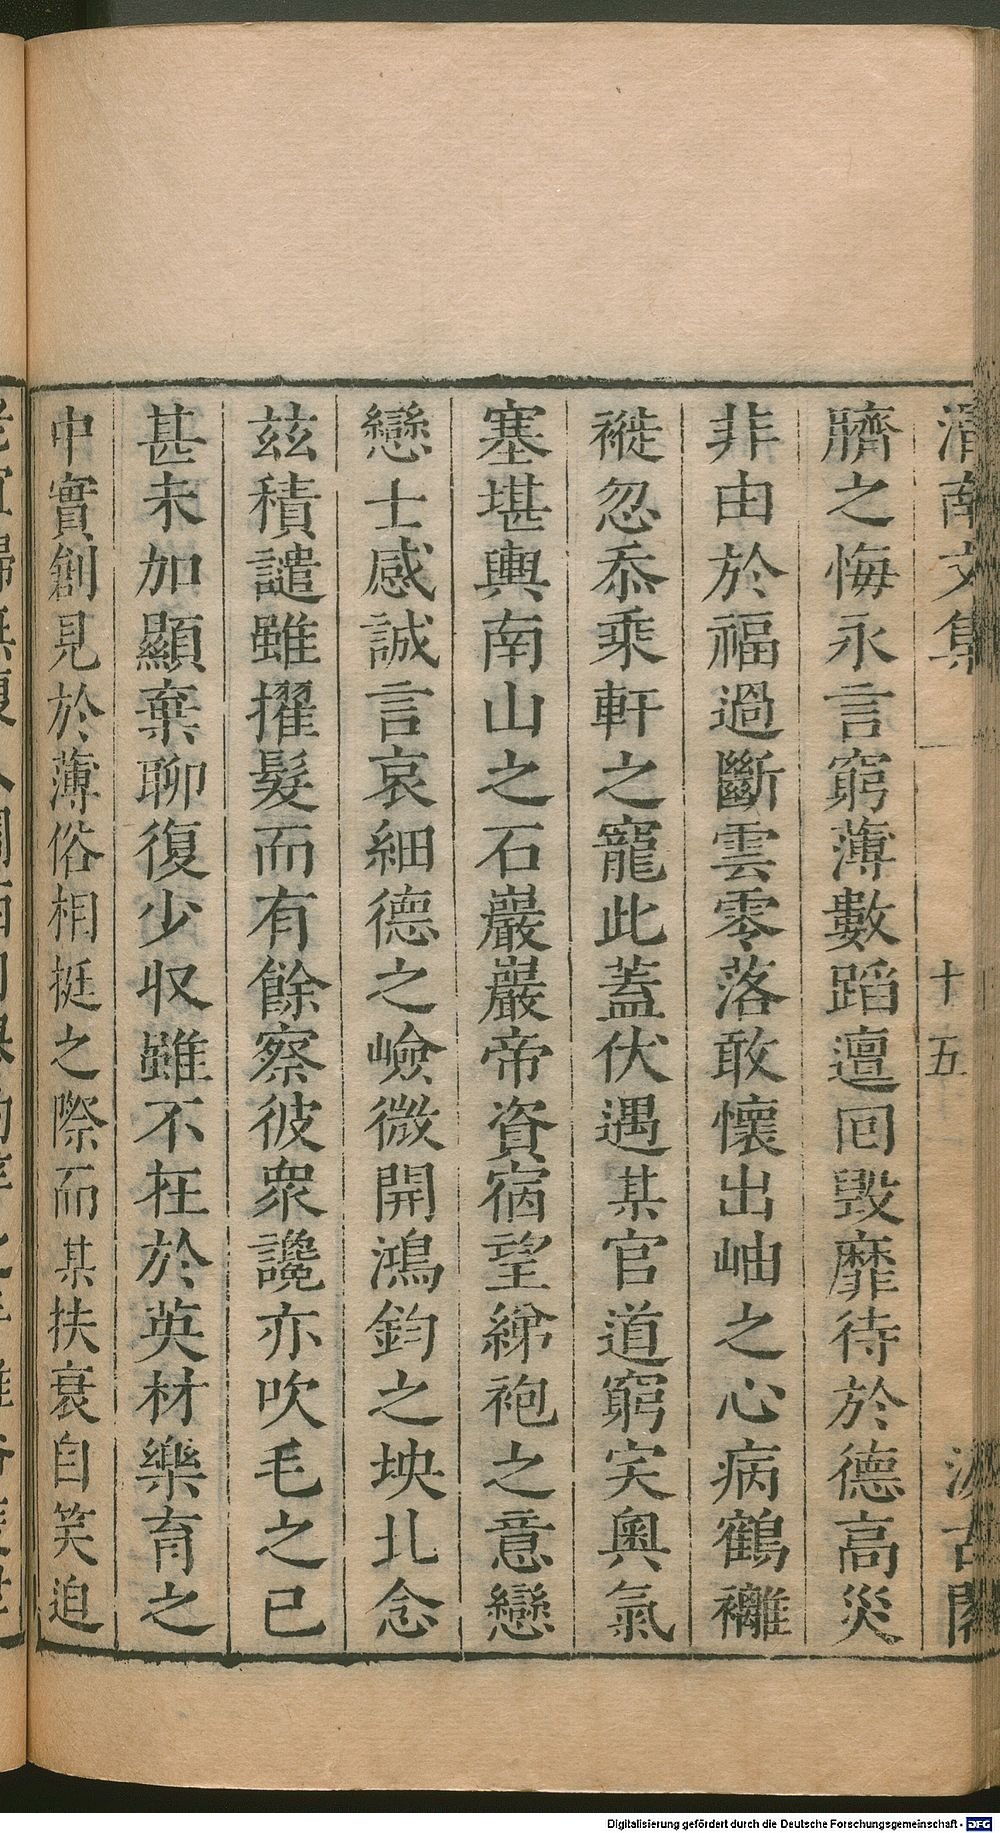 渭南文集 十五 汲古閣
臍之悔永言窮薄數蹈邅囘毀靡待於德高災
非由於福過斷雲零落敢懷出岫之心病鶴襹
褷忽忝乘軒之寵此蓋伏遇某官道窮突奧氣
塞堪輿南山之石巖巖帝資宿望綈袍之意戀
戀士感誠言哀細德之嶮微開鴻鈞之坱北念
兹積譴雖擢髮而有餘察彼衆讒亦吹毛之已
甚未加顯棄聊復少収雖不在於英材樂育之
中實創見於薄俗相挺之際而某扶衰自笑迫
Digitalisierung gefördert durch die Deutsche Forschungsgemeinschaft - DFG